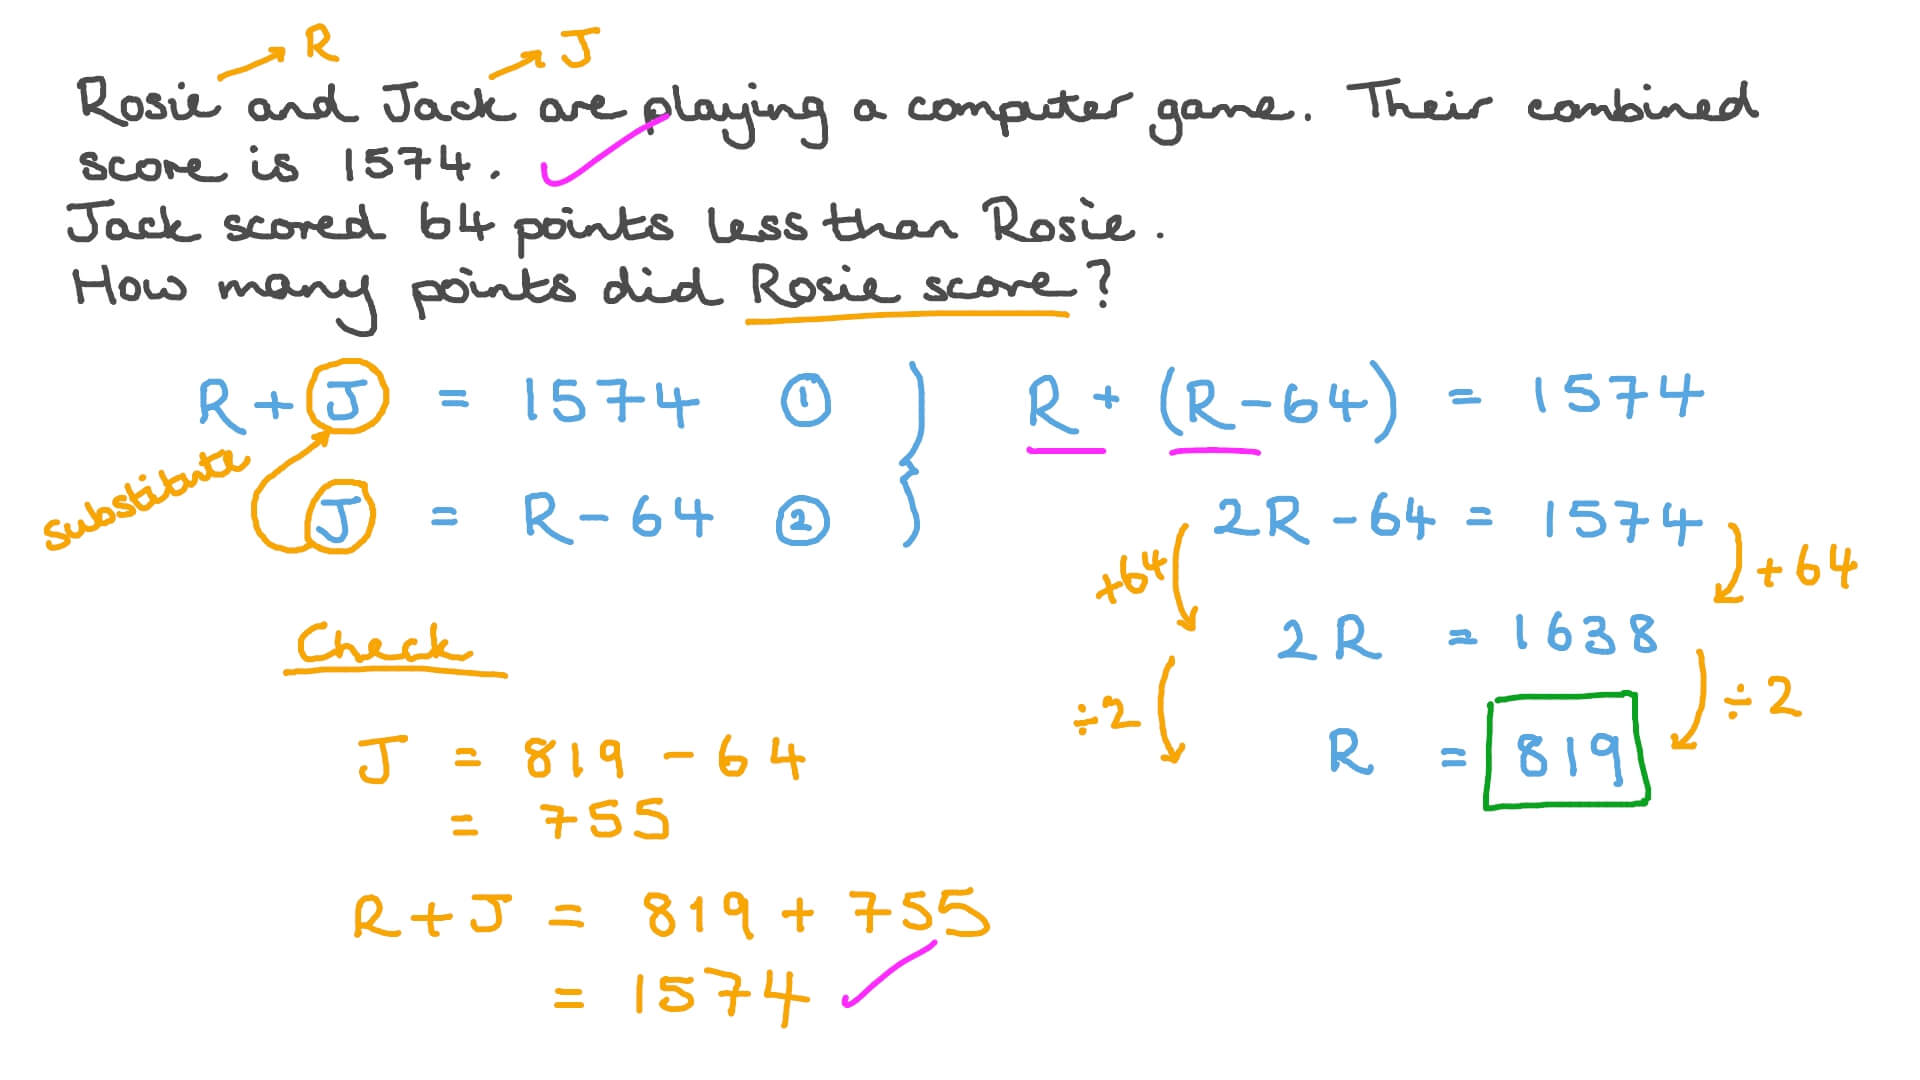 R J
Rosie and Jack are playing a computer game. Their combined
score is 1574.
Jack scored 64 points less than Rosie.
How many points did Rosie score?
R + J = 1574 ①
substitute
J = R - 64 ②
R + (R - 64) = 1574
2R - 64 = 1574
+64 +64
2R = 1638
÷2 ÷2
R = 819
Check
J = 819 - 64
= 755
R + J = 819 + 755
= 1574